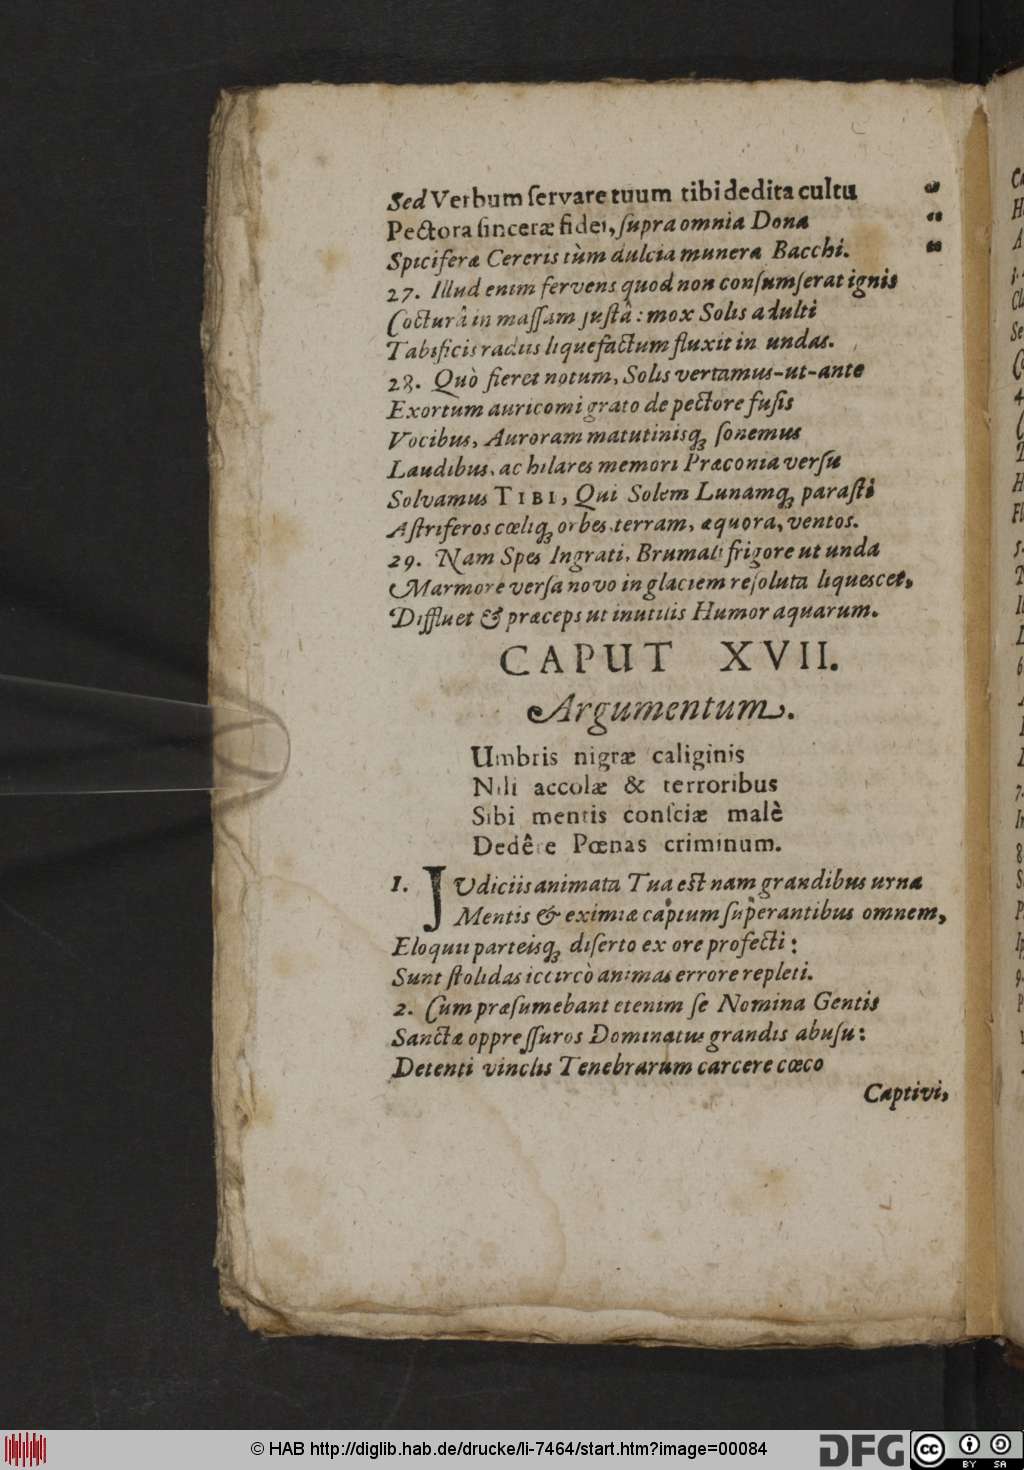 Sed Verbum ſervare tuum tibi dedita cultu „
Pectora ſinceræ fidei, ſupra omnia Dona „
Spiciferæ Cereris tùm dulcia munera Bacchi. „
27. Illud enim fervens quod non conſumſerat ignis
Cocturâ in maſſam juſtâ: mox Solis adulti
Tabificis radiis liquefactum fluxit in undas.
28. Quò fieret notum, Solis vertamus-ut-ante
Exortum auricomi grato de pectore fuſis
Vocibus, Auroram matutinisq; ſonemus
Laudibus, ac hilares memori Præconia verſu
Solvamus TIBI, Qui Solem Lunamq; paraſti
Aſtriferos cœliq; orbes, terram, æquora, ventos.
29. Nam Spes Ingrati, Brumali frigore ut unda
Marmore verſa novo in glaciem reſoluta liquescet,
Diffluet & præceps ut inutilis Humor aquarum.
CAPUT XVII.
Argumentum.
Umbris nigræ caliginis
Nili accolæ & terroribus
Sibi mentis conſciæ malè
Dedêre Pœnas criminum.
1. JUdiciis animata Tua est nam grandibus urna
Mentis & eximiæ captum ſuperantibus omnem,
Eloquii parteisq; diſerto ex ore profecti:
Sunt ſtolidas iccircò animas errore repleti.
2. Cum præſumebant etenim ſe Nomina Gentis
Sanctæ oppreſſuros Dominatus grandis abuſu:
Detenti vinclis Tenebrarum carcere cœco
Captivi,
© HAB http://diglib.hab.de/drucke/li-7464/start.htm?image=00084
DFG
cc
BY SA